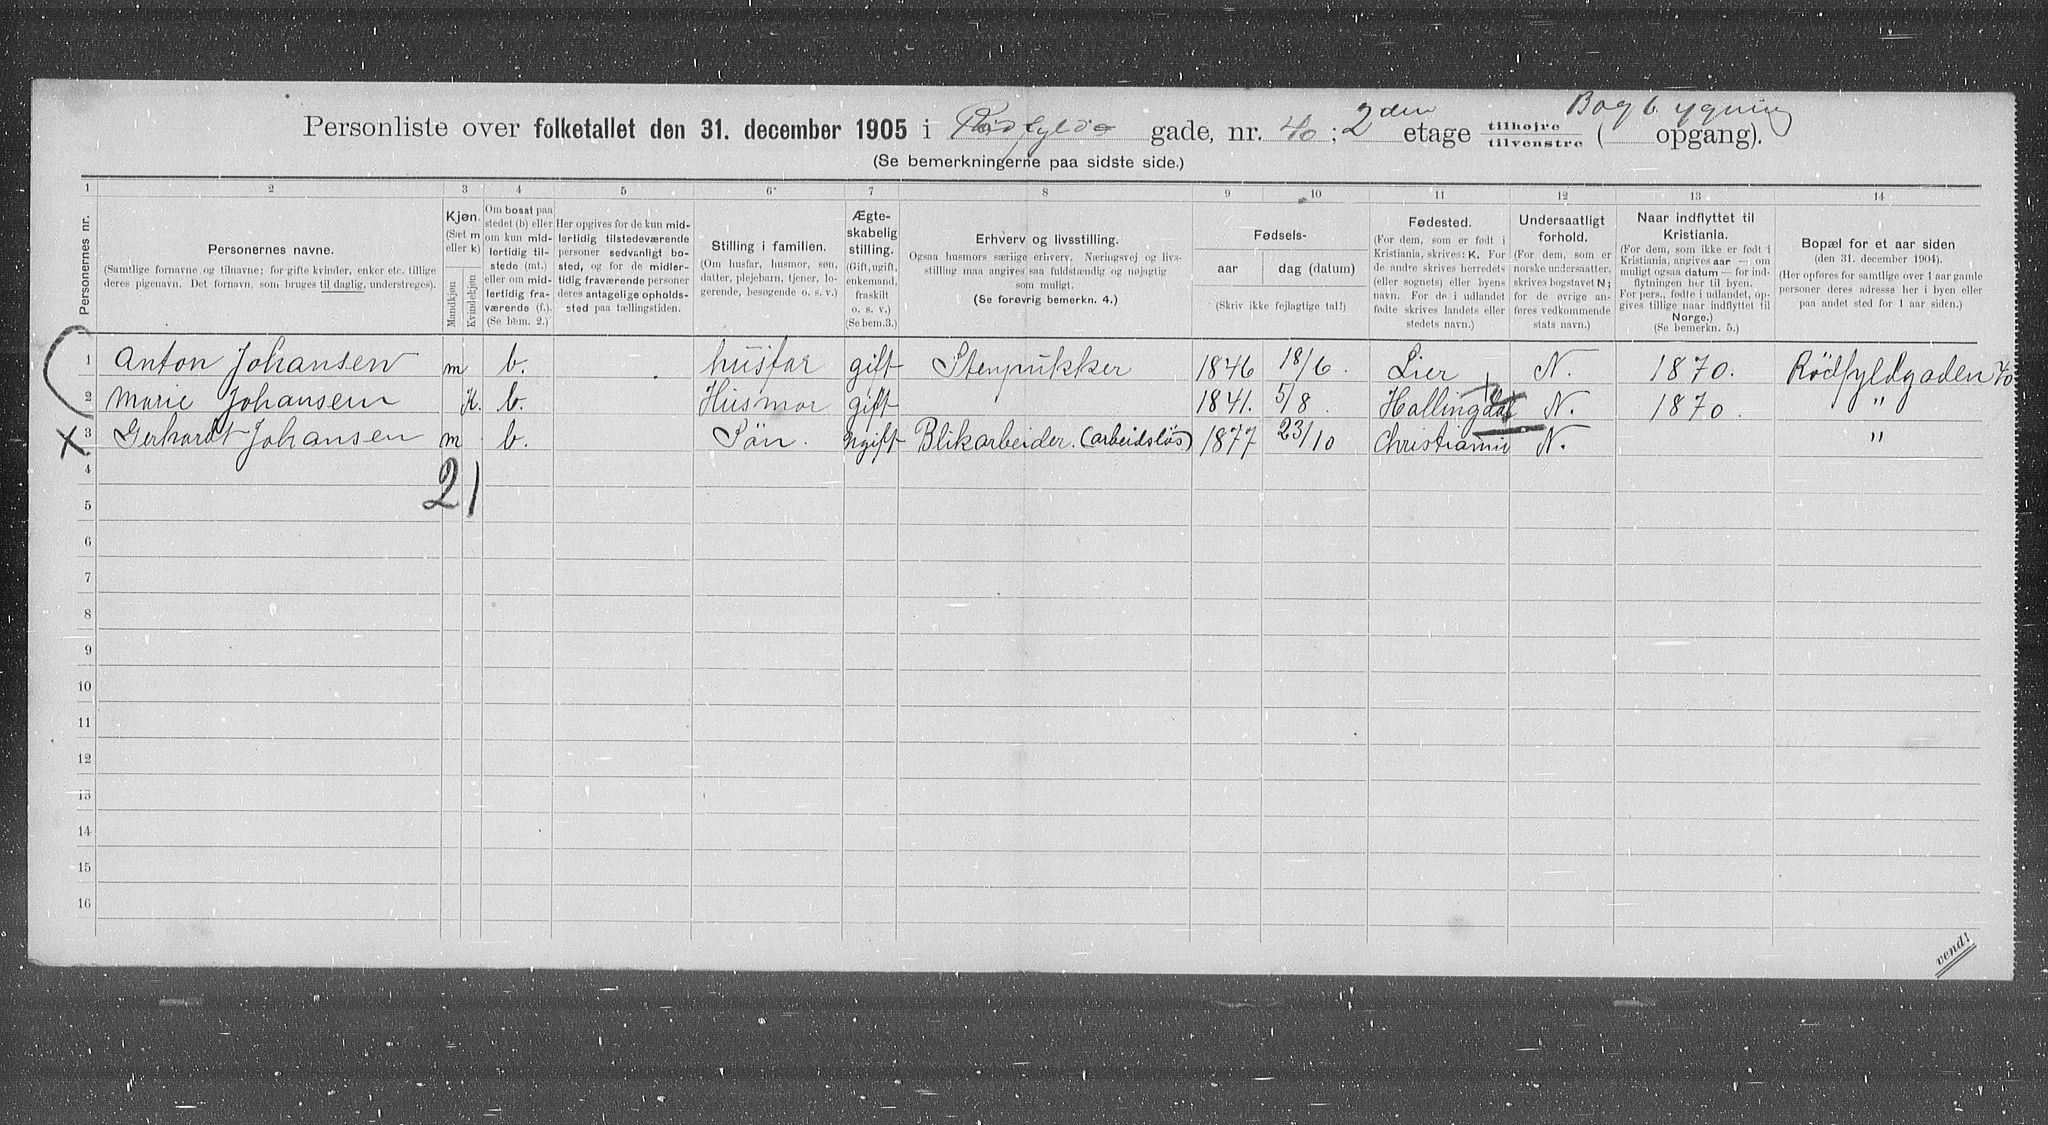 Bagbygning
Personliste over folketallet den 31. december 1905 i Rødfyldø gade, nr. 40; 2den etage tilhøjre/tilvenstre ( opgang).
(Se bemerkningerne paa sidste side.)
1 2 3 4 5 6 7 8 9 10 11 12 13 14
Personernes nr.
Personernes navne.
(Samtlige fornavne og tilnavne; for gifte kvinder, enker etc. tillige
deres pigenavn. Det fornavn, som bruges til daglig, understreges).
Kjøn.
(Sæt m
eller k)
Mandkjøn
Kvindekjøn
Om bosat paa
stedet (b) eller
om kun mid-
lertidig til-
stede (mt.)
eller om mid-
lertidig fra-
værende (f.).
(Se bem. 2.)
Her opgives for de kun mid-
lertidig tilstedeværende
personer sedvanligt bo-
sted, og for de midler-
tidig fraværende personer
deres antagelige opholds-
sted paa tællingstiden.
Stilling i familien.
(Om husfar, husmor, søn,
datter, plejebarn, tjener, lo-
gerende, besøgende o. s. v.)
Ægte-
skabelig
stilling.
(Gift, ugift,
enkemand,
fraskilt
o. s. v.)
(Se bem.3.)
Erhverv og livsstilling.
Ogsaa husmors særlige erhverv. Næringsvej og livs-
stilling maa angives saa fuldstændig og nøjagtig
som muligt.
(Se forøvrig bemerkn. 4.)
Fødsels-
aar
dag (datum)
(Skriv ikke fejlagtige tal!)
Fødested.
(For dem, som er født i
Kristiania, skrives: K. For
de andre skrives herredets
(eller sognets) eller byens
navn. For de i udlandet
fødte skrives landets eller
stedets navn.)
Undersaatligt
forhold.
(For dem, som er
norske undersaatter,
skrives bogstavet N;
for de øvrige an-
føres vedkommende
stats navn.)
Naar indflyttet til
Kristiania.
(For dem, som ikke er født i
Kristiania, angives aar — om
muligt ogsaa datum — for ind-
flytningen her til byen.
For pers., fødte i udlandet, op-
gives tillige naar indflyttet til
Norge.)
(Se bemerkn. 5.)
Bopæl for et aar siden
(den 31. december 1904).
(Her opføres for samtlige over 1 aar gamle
personer deres adresse her i byen eller
paa andet sted for 1 aar siden.)
1 Anton Johansen m b. husfar gift Stenpukker 1846 18/6. Lier N. 1870. Rödfyldgaden 40
2 Marie Johansen K. b. Husmor gift 1841. 5/8. Hallingdal N. 1870. "
3 Gerhardt Johansen m b. Sön. ugift Blikarbeider. (arbeidslös) 1877 23/10 Christiania N. "
4
21
5
6
7
8
9
10
11
12
13
14
15
16
vend!